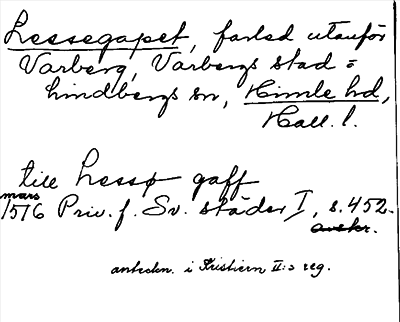 Lessegapet, farled utanför
Varberg, Varbergs stad =
Lindbergs sn, Himle hd,
Hall. l.
till Lessø gaff
mars
1516 Priv. f. Sv. städer I, s. 452.
avskr.
anteckn. i Kristiern II:s reg.